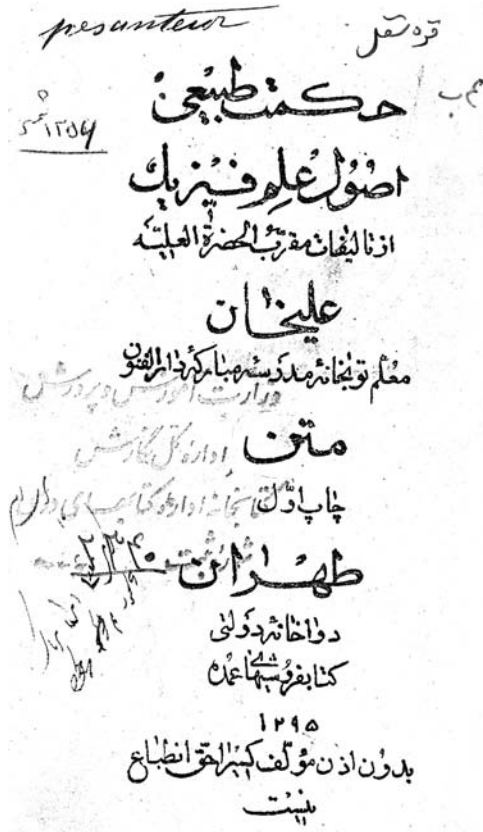 pesanteur
قوه ثقل
حکمت طبیعی
اصول علم فیزیک
از تالیفات مقرب الحضرة العلیه
علیخان
معلم توپخانهٔ مدرسه مبارکهٔ دارالفنون
وزارت آموزش و پرورش
متن
اداره کل نگارش
چاپ اوّل
طهران
دواخانهٔ دولتی
کتابفروشیهای عمده
۱۲۹۵
بدون اذن مولّف کسیرا حق انطباع
نیست